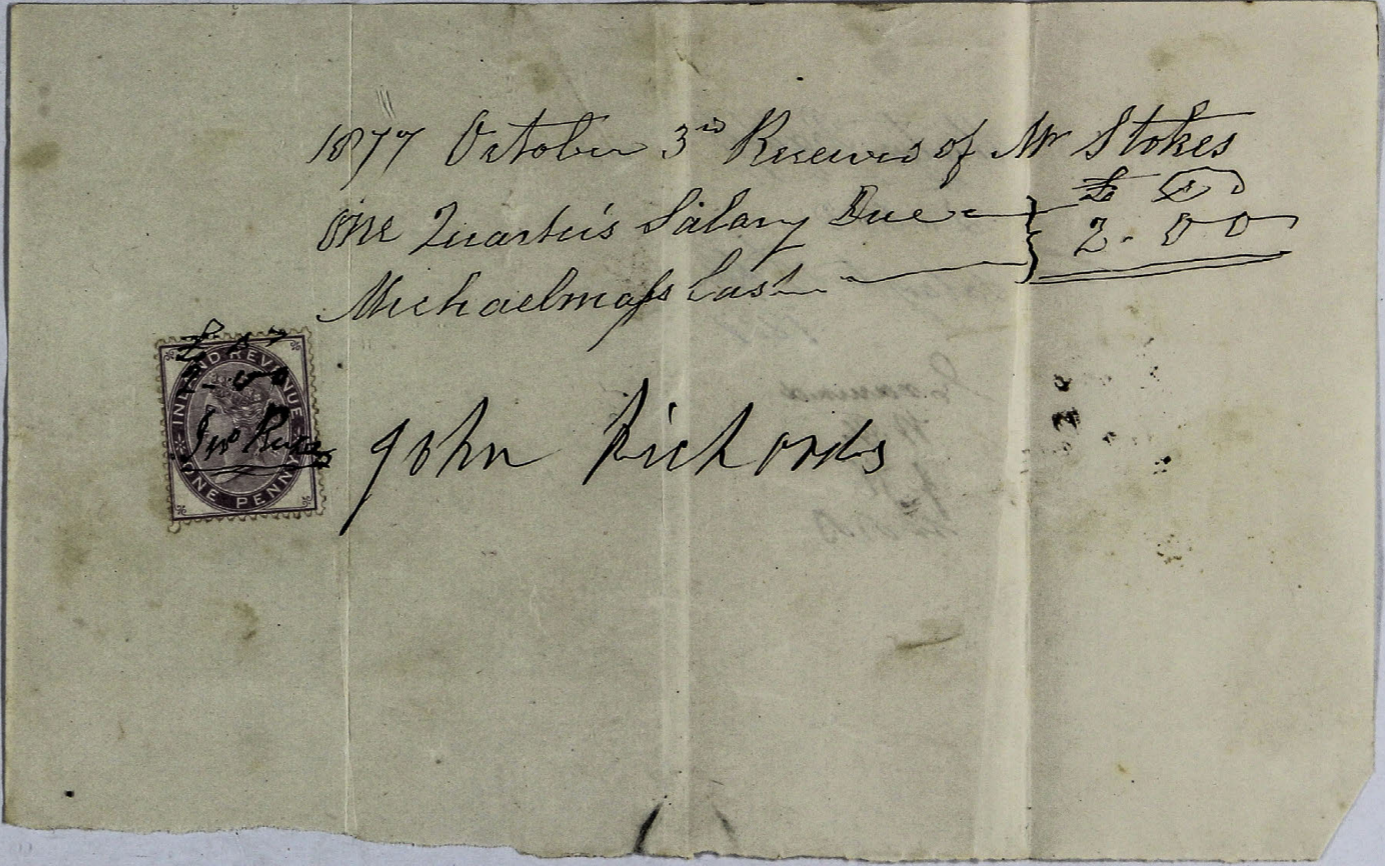 1877 October 3rd Received of Mr Stokes
One Quarter's Salary Due } £ s D
Michaelmass Last } 2-00
INLAND REVENUE
£ s D
Jno
ONE PENNY
John Richords